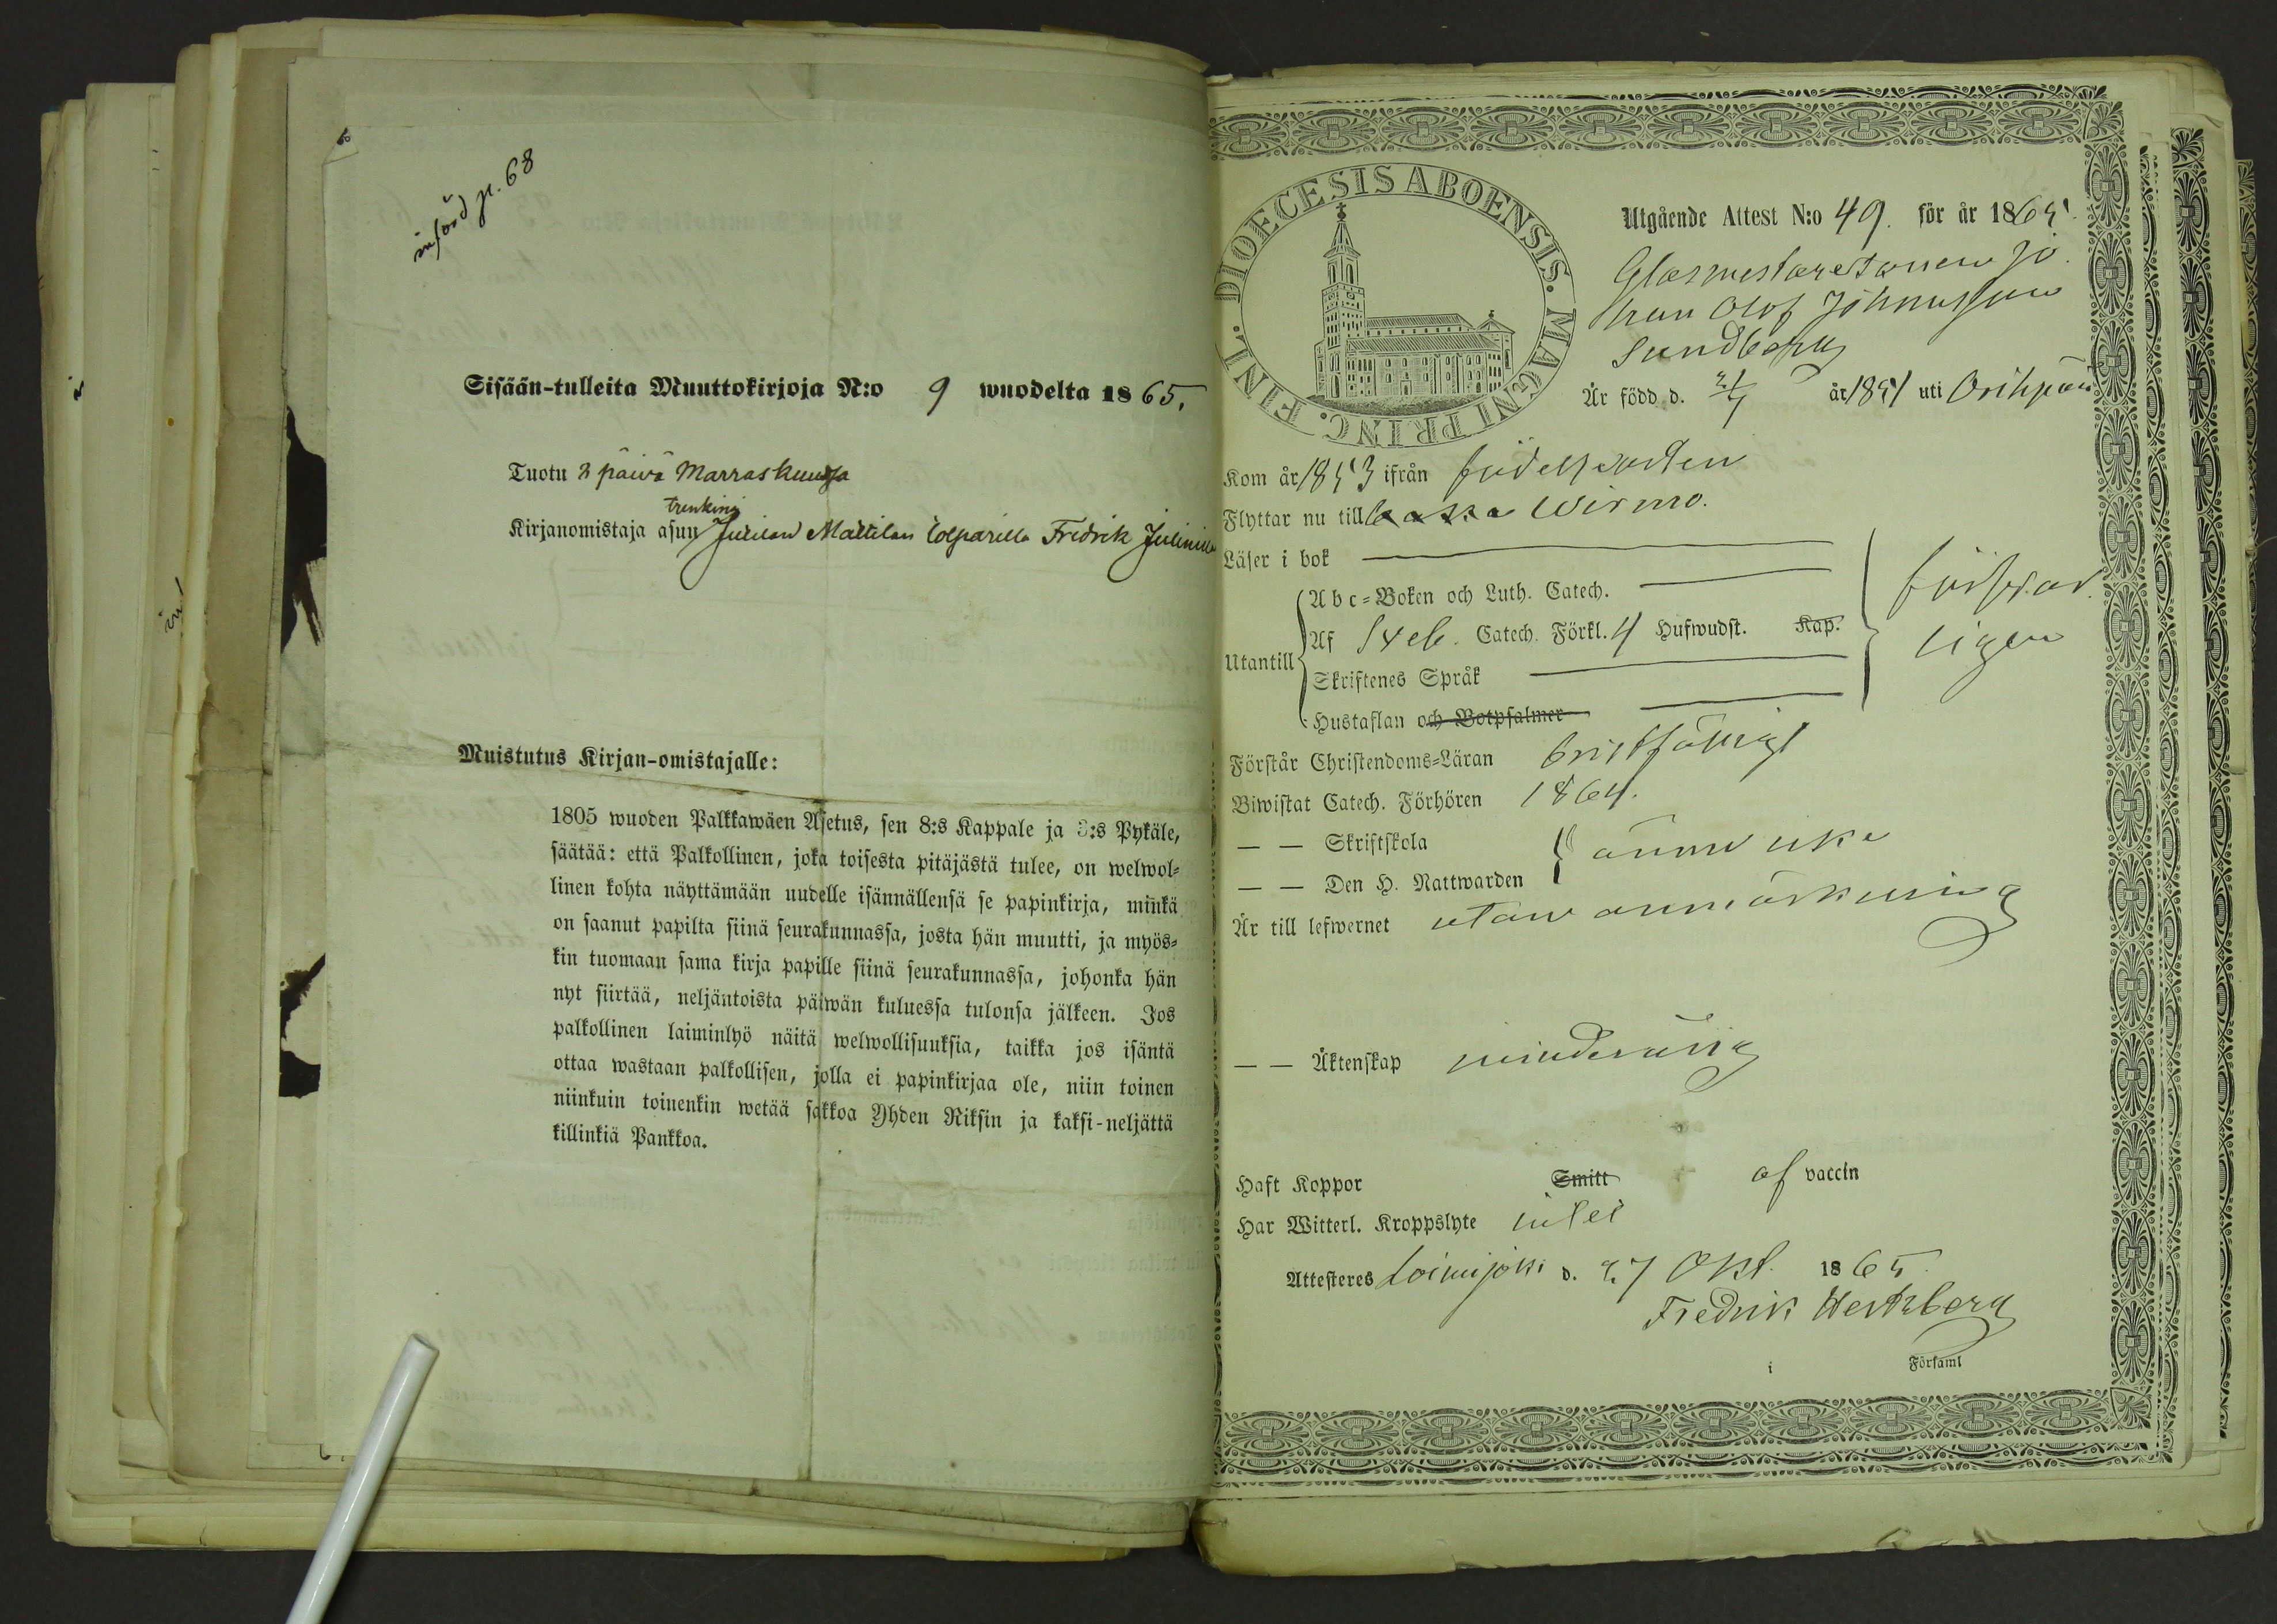 införd p. 68
Sisään-tulleita Muuttokirjoja N:o 9 wuodelta 1865.
Tuotu 3 päivä Marraskuussa
trenkinä
Kirjanomistaja asuu Juvilan Mattilan Fredrik
Muistutus Kirjan-omistajalle:
1805 wuoden Palkkawäen Asetus, sen 8:s Kappale ja 3:s Pykäle,
säätää: että Palkollinen, joka toisesta pitäjästä tulee, on welwol-
linen kohta näyttämään uudelle isännällensä se papinkirja, minkä
on saanut papilta siinä seurakunnassa, josta hän muutti, ja myös-
kin tuomaan sama kirja papille siinä seurakunnassa, johonka hän
nyt siirtää, neljäntoista päiwän kuluessa tulonsa jälkeen. Jos
palkollinen laiminlyö näitä welwollisuuksia, taikka jos isäntä
ottaa wastaan palkollisen, jolla ei papinkirjaa ole, niin toinen
niinkuin toinenkin wetää sakkoa Yhden Riksin ja kaksi-neljättä
killinkiä Pankkoa.
DIOECESIS ABOENSIS. MAGNI PRINC. FINL.
Utgående Attest N:o 49. för år 1865.
Glasmestaresonen Jo-
han Olof Johansson
Sundberg
Är född d. år 1851 uti Oripää
Kom år 1853 ifrån födelseorten
Flyttar nu till Wirmo.
Läser i bok
Abc-Boken och Luth. Catech.
Utantill
Af Sveb. Catech. Förkl. 4 Hufwudst. Kap.
Skriftenes Språk
Hustaflan och Botpsalmer
försvar-
ligen
Förstår Christendoms-Läran bristfälligt
Biwistat Catech. Förhören 1864.
— — Skriftskola
— — Den H. Nattwarden
ännu icke
Är till lefwernet utan anmärkning
— — Äktenskap minderårig
Haft Koppor Smitt af vaccin
Har Witterl. Kroppslyte intet
Attesteres Loimijoki d. 27 Okt. 1865
Fredrik Hertzberg
i Församl